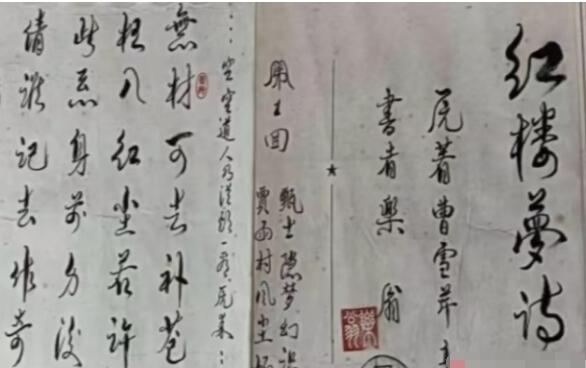 红楼夢诗
原著曹雪芹
書者樂翁
樂翁
回
甄士隐梦幻识
贾雨村风尘
空空道人乃從頭一看原来：
無材可去补苍
枉入红尘若许
此系身前身后
倩谁记去作奇